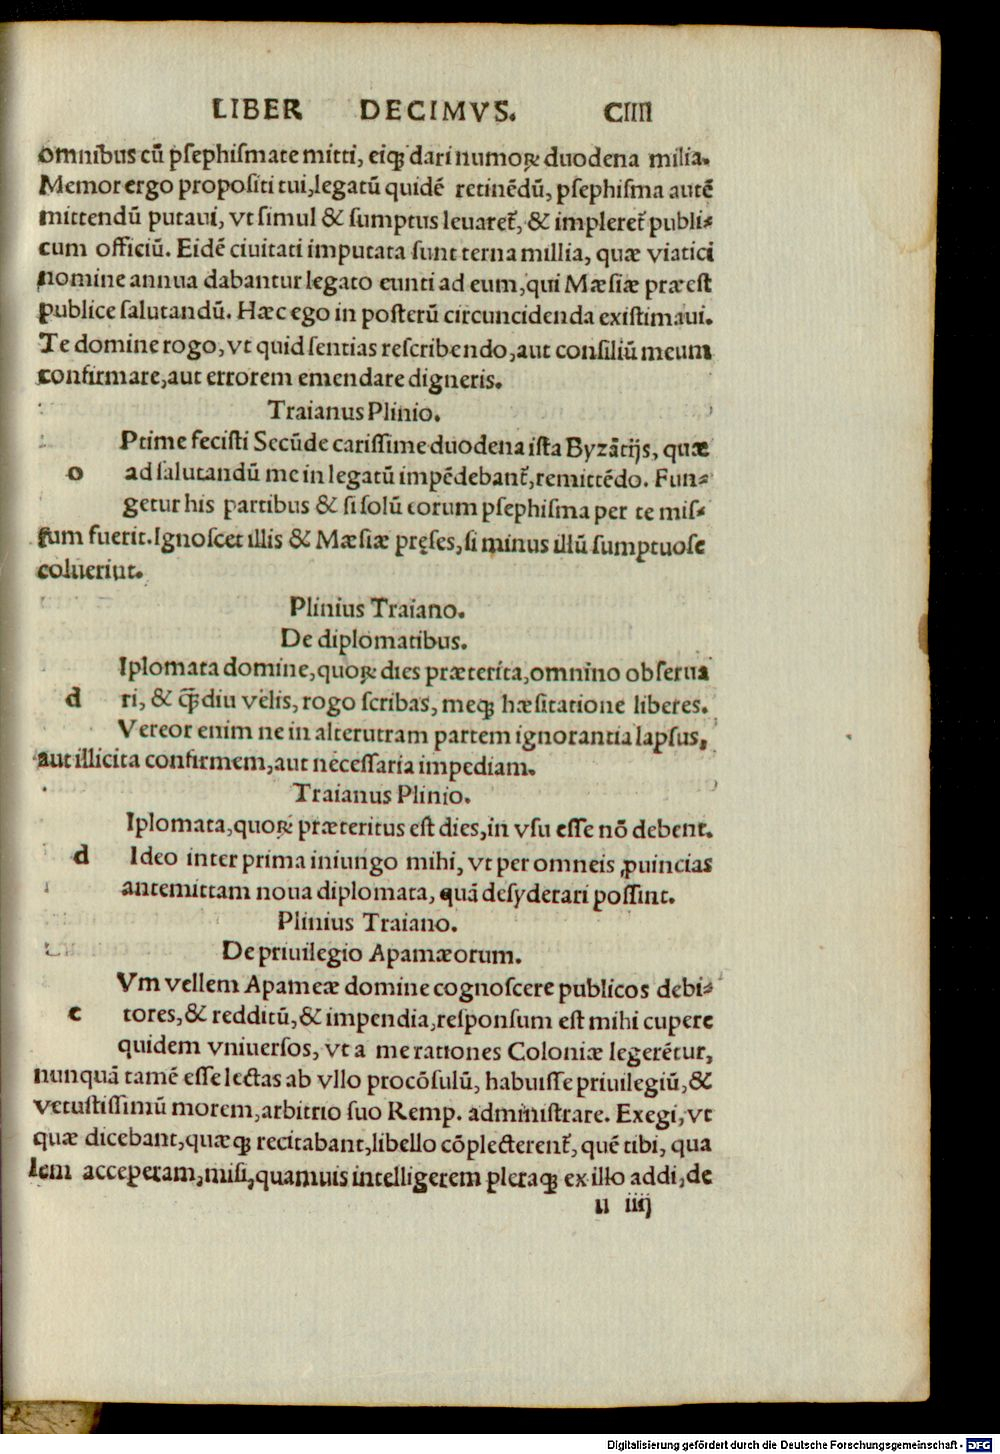 LIBER DECIMVS. CIIII
omnibus cũ pſephiſmate mitti, eiqꝫ dari numoꝝ duodena milia.
Memor ergo propoſiti tui, legatũ quidẽ retinẽdũ, pſephiſma autẽ
mittendũ putaui, vt ſimul & ſumptus leuaret᷑, & impleret᷑ publi⸗
cum officiũ. Eidẽ ciuitati imputata ſunt terna millia, quæ viatici
nomine annua dabantur legato eunti ad eum, qui Mæſiæ præeſt
publice ſalutandũ. Hæc ego in poſterũ circuncidenda exiſtimaui.
Te domine rogo, vt quid ſentias reſcribendo, aut conſiliũ meum
confirmare, aut errorem emendare digneris.
Traianus Plinio.
Ptime feciſti Secũde cariſſime duodena iſta Byzãtijs, quæ
o ad ſalutandũ me in legatũ impẽdebant᷑, remittẽdo. Fun⸗
getur his partibus & ſi ſolũ eorum pſephiſma per te miſ⸗
ſum fuerit. Ignoſcet illis & Mæſiæ pręſes, ſi minus illũ ſumptuoſe
coluerint.
Plinius Traiano.
De diplomatibus.
Iplomata domine, quoꝝ dies præterita, omnino obſerua
d ri, & q̃diu velis, rogo ſcribas, meqꝫ hæſitatione liberes.
Vereor enim ne in alterutram partem ignorantia lapſus,
aut illicita confirmem, aut neceſſaria impediam.
Traianus Plinio.
Iplomata, quoꝝ præteritus eſt dies, in vſu eſſe nõ debent.
d Ideo inter prima iniungo mihi, vt per omneis ꝓuincias
antemittam noua diplomata, quã deſyderari poſſint.
Plinius Traiano.
De priuilegio Apamæorum.
Vm vellem Apameæ domine cognoſcere publicos debi⸗
c tores, & redditũ, & impendia, reſponſum eſt mihi cupere
quidem vniuerſos, vt a me rationes Coloniæ legerẽtur,
nunquã tamẽ eſſe lectas ab vllo procõſulũ, habuiſſe priuilegiũ, &
vetuſtiſſimũ morem, arbitrio ſuo Remp. adminiſtrare. Exegi, vt
quæ dicebant, quæqꝫ recitabant, libello cõplecterent᷑, quẽ tibi, qua
lem acceperam, miſi, quamuis intelligerem pleraqꝫ ex illo addi, de
u iiij
Digitalisierung gefördert durch die Deutsche Forschungsgemeinschaft - DFG